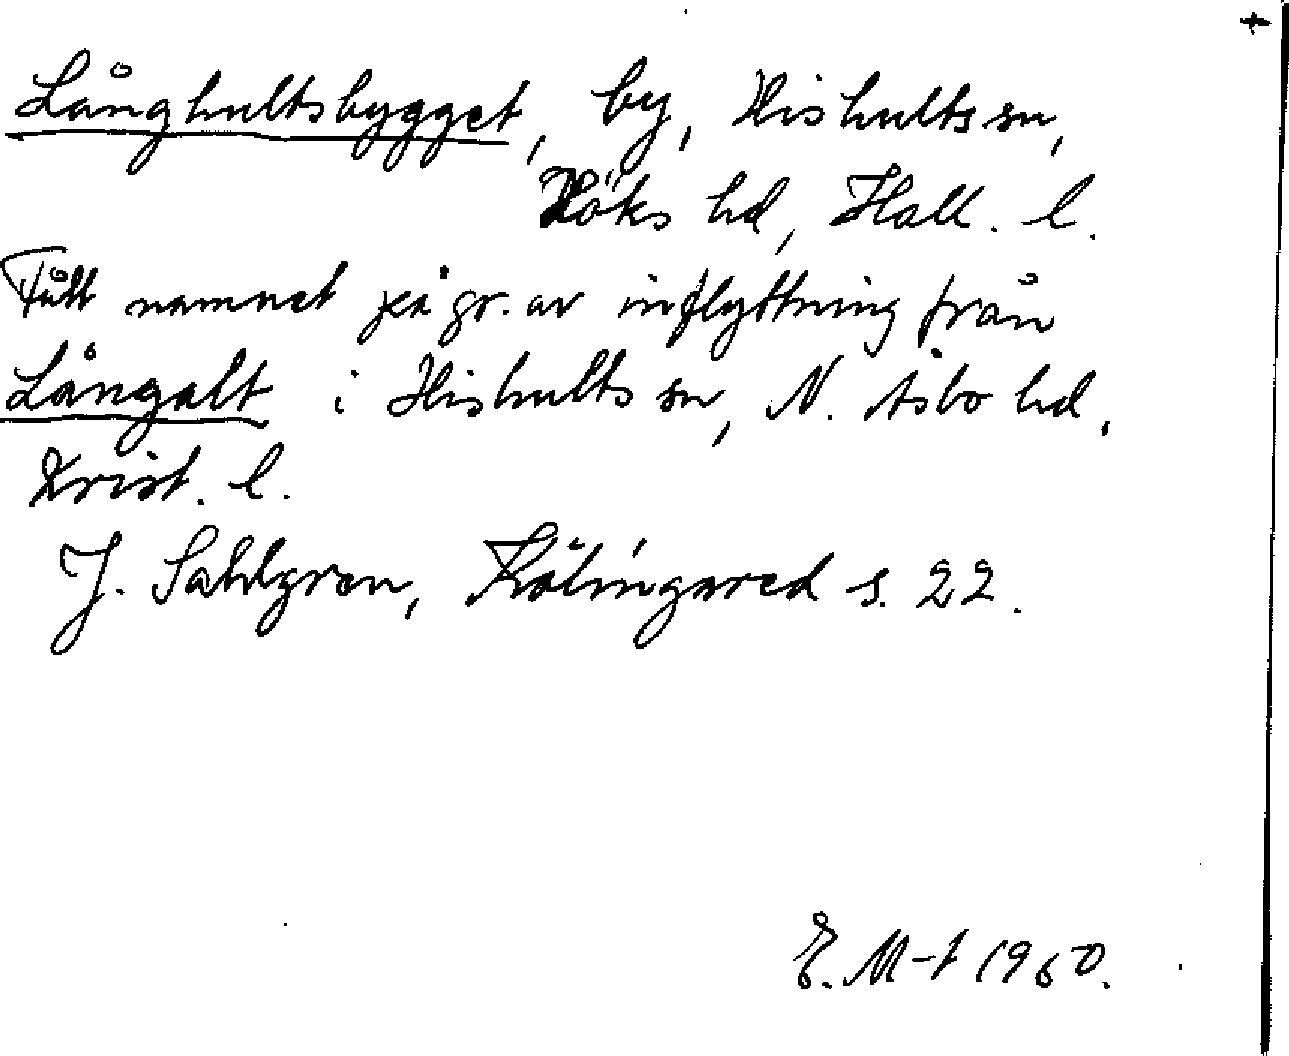 Långhultsbygget, by, Hishults sn,
Höks hd, Hall. l.
Fått namnet på gr. av inflyttning från
Långalt i Hishults sn, N. Åsbo hd,
Krist. l.
J. Sahlgren, Kölingared s. 22.
E. M-t 1960.